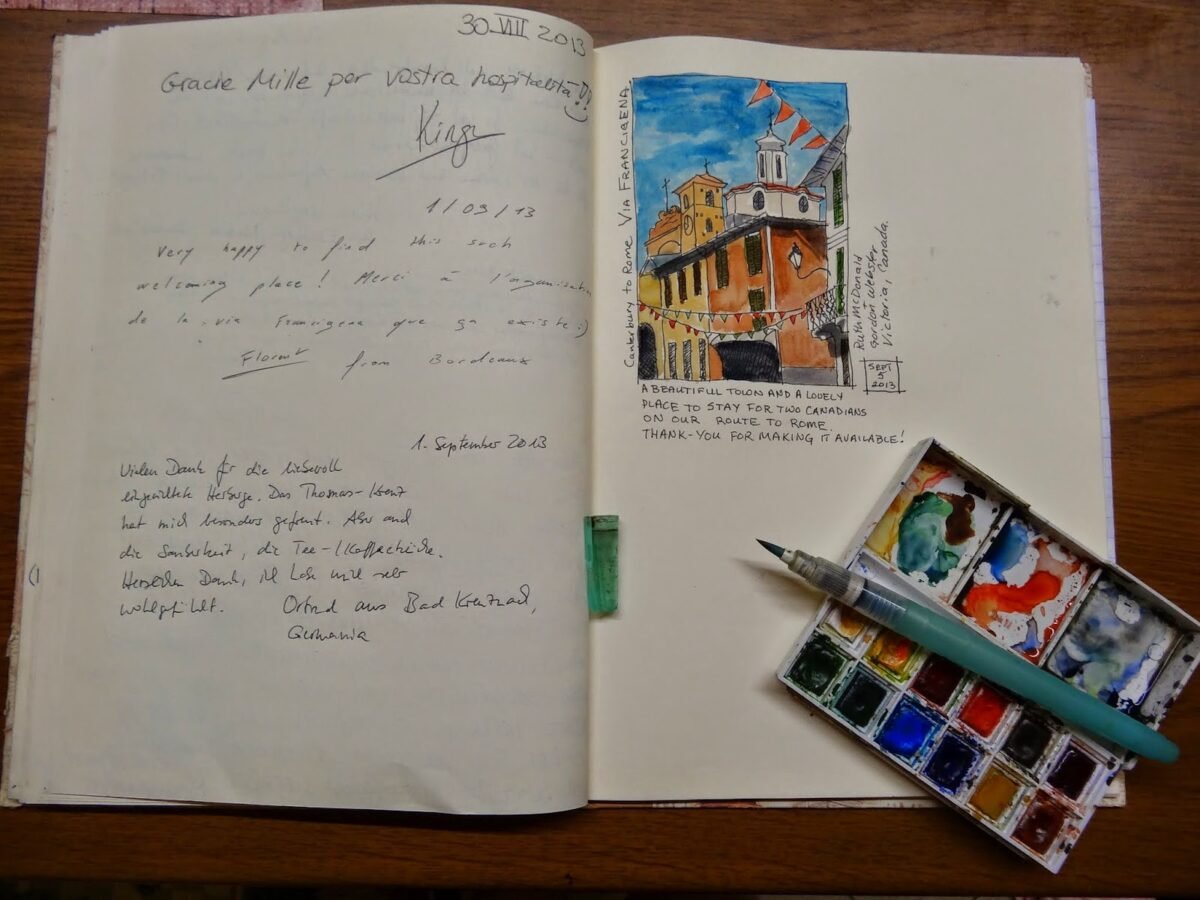 30 VIII 2013
Gracie Mille per vostra hospitalità!!
Kinga
1/09/13
Very happy to find this such
welcoming place! Merci à l'organisation
de la via Francigena que ça existe :)
from Bordeaux
1. September 2013
Vielen Dank für die liebevoll
Herberge. Das Thomas-Kreuz
hat mich besonders gefreut. Aber auch
die Sauberkeit, die Tee-/Kaffeeküche.
Herzlichen Dank, ich habe mich sehr
wohlgefühlt. Ortrud aus Bad Kreuznach,
Germania
CANTERBURY TO ROME VIA FRANCIGENA
RUTH MCDONALD
+
GORDON WEBSTER
VICTORIA, CANADA.
SEPT
5
2013
A BEAUTIFUL TOWN AND A LOVELY
PLACE TO STAY FOR TWO CANADIANS
ON OUR ROUTE TO ROME.
THANK-YOU FOR MAKING IT AVAILABLE!